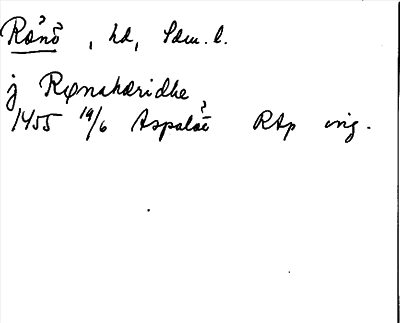 Rånö, hd, Sdm. l.
j Rønahæridhe
1455 19/6 Aspalæ RAp orig.